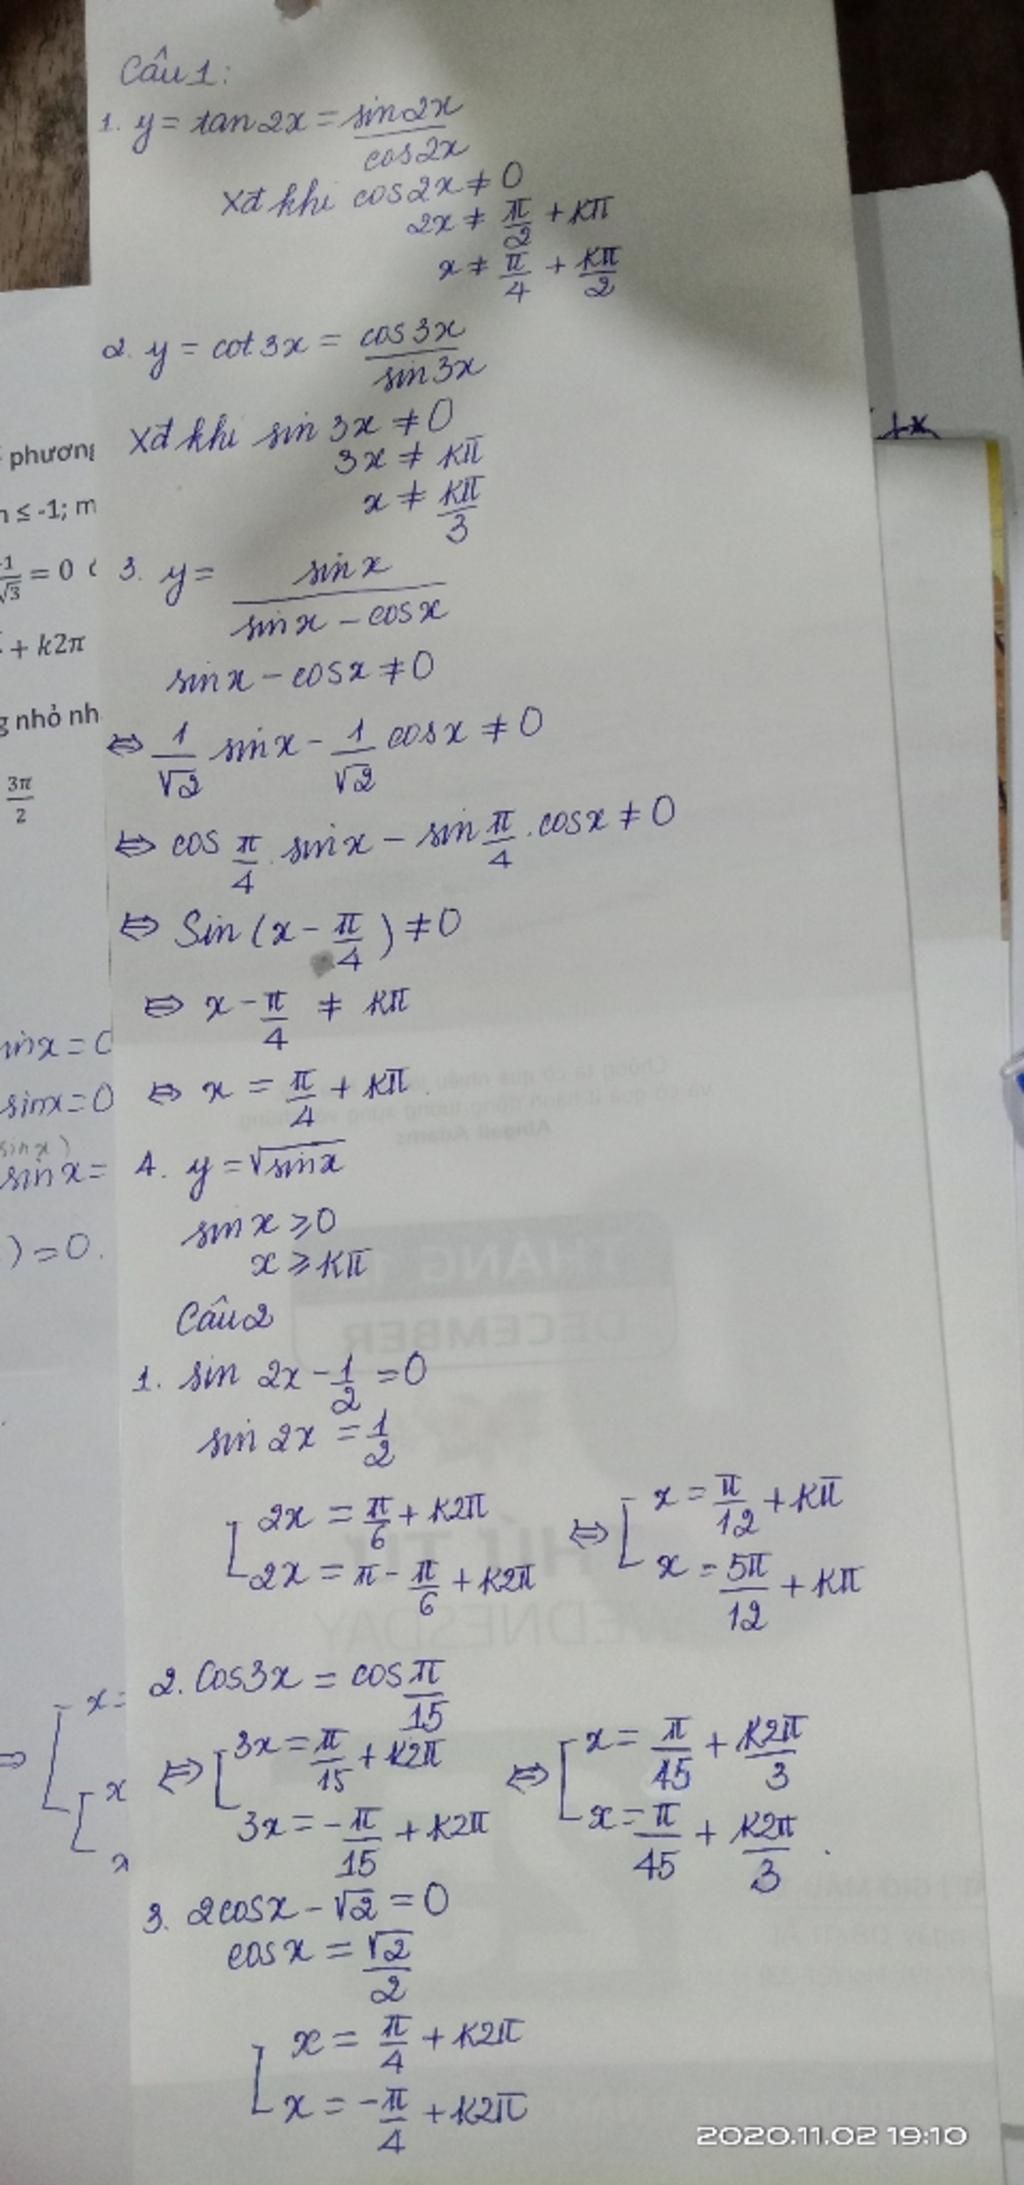 Câu 1:
1. y = tan 2x = sin2x / cos2x
Xđ khi cos2x ≠ 0
2x ≠ π/2 + kπ
x ≠ π/4 + kπ/2
2. y = cot 3x = cos 3x / sin 3x
Xđ khi sin 3x ≠ 0
3x ≠ kπ
x ≠ kπ/3
3. y = sin x / sin x - cos x
sin x - cos x ≠ 0
⇔ 1/√2 sin x - 1/√2 cos x ≠ 0
⇔ cos π/4 . sin x - sin π/4 . cos x ≠ 0
⇔ Sin (x - π/4) ≠ 0
⇔ x - π/4 ≠ kπ
⇔ x = π/4 + kπ.
4. y = √sin x
sin x ≥ 0
x ≥ kπ
Câu 2
1. sin 2x - 1/2 = 0
sin 2x = 1/2
[ 2x = π/6 + k2π ⇔ [ x = π/12 + kπ
2x = π - π/6 + k2π x = 5π/12 + kπ
2. Cos3x = cos π/15
⇔ [ 3x = π/15 + k2π ⇔ [ x = π/45 + k2π/3
3x = -π/15 + k2π x = π/45 + k2π/3.
3. 2cos x - √2 = 0
cos x = √2/2
[ x = π/4 + k2π
x = -π/4 + k2π
phương
≤ -1; m
= 0
+ k2π
nhỏ nh
3π/2
sinx = 0
sinx =
) = 0.
x =
x
x
+x
THÁNG 1
DECEMBER
THỨ TƯ
WEDNESDAY
Abigail Adams
2020.11.02 19:10